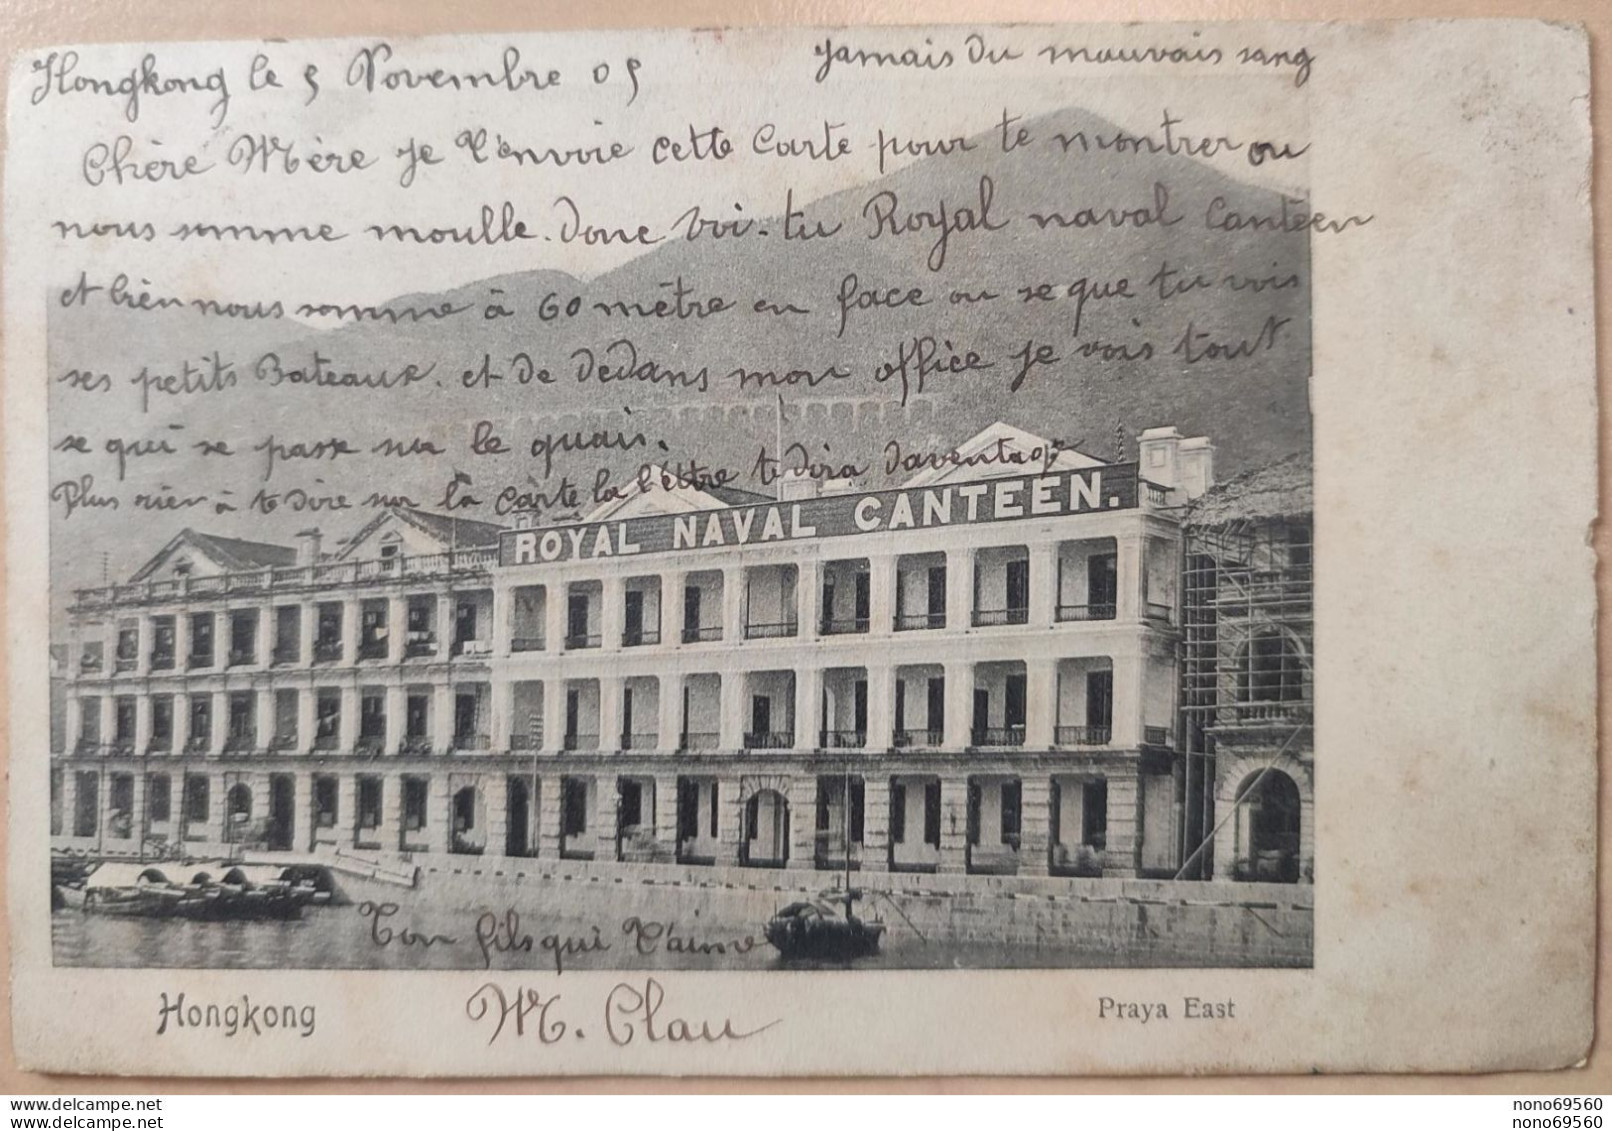 Hongkong le 5 Novembre 05
Jamais du mauvais sang
Chère Mère je t'envoie cette Carte pour te montrer ou
nous somme moulle. donc voi-tu Royal naval Canteen
et bien nous somme à 60 mètre en face ou se que tu vois
ses petits Bateaux. et de dedans mon office je vois tout
se qui se passe sur le quais.
Plus rien à te dire sur la carte la lettre te dira daventage
ROYAL NAVAL CANTEEN.
Ton fils qui t'aime
M. Clau
Hongkong
Praya East
delcampe.net
nono69560
nono69560